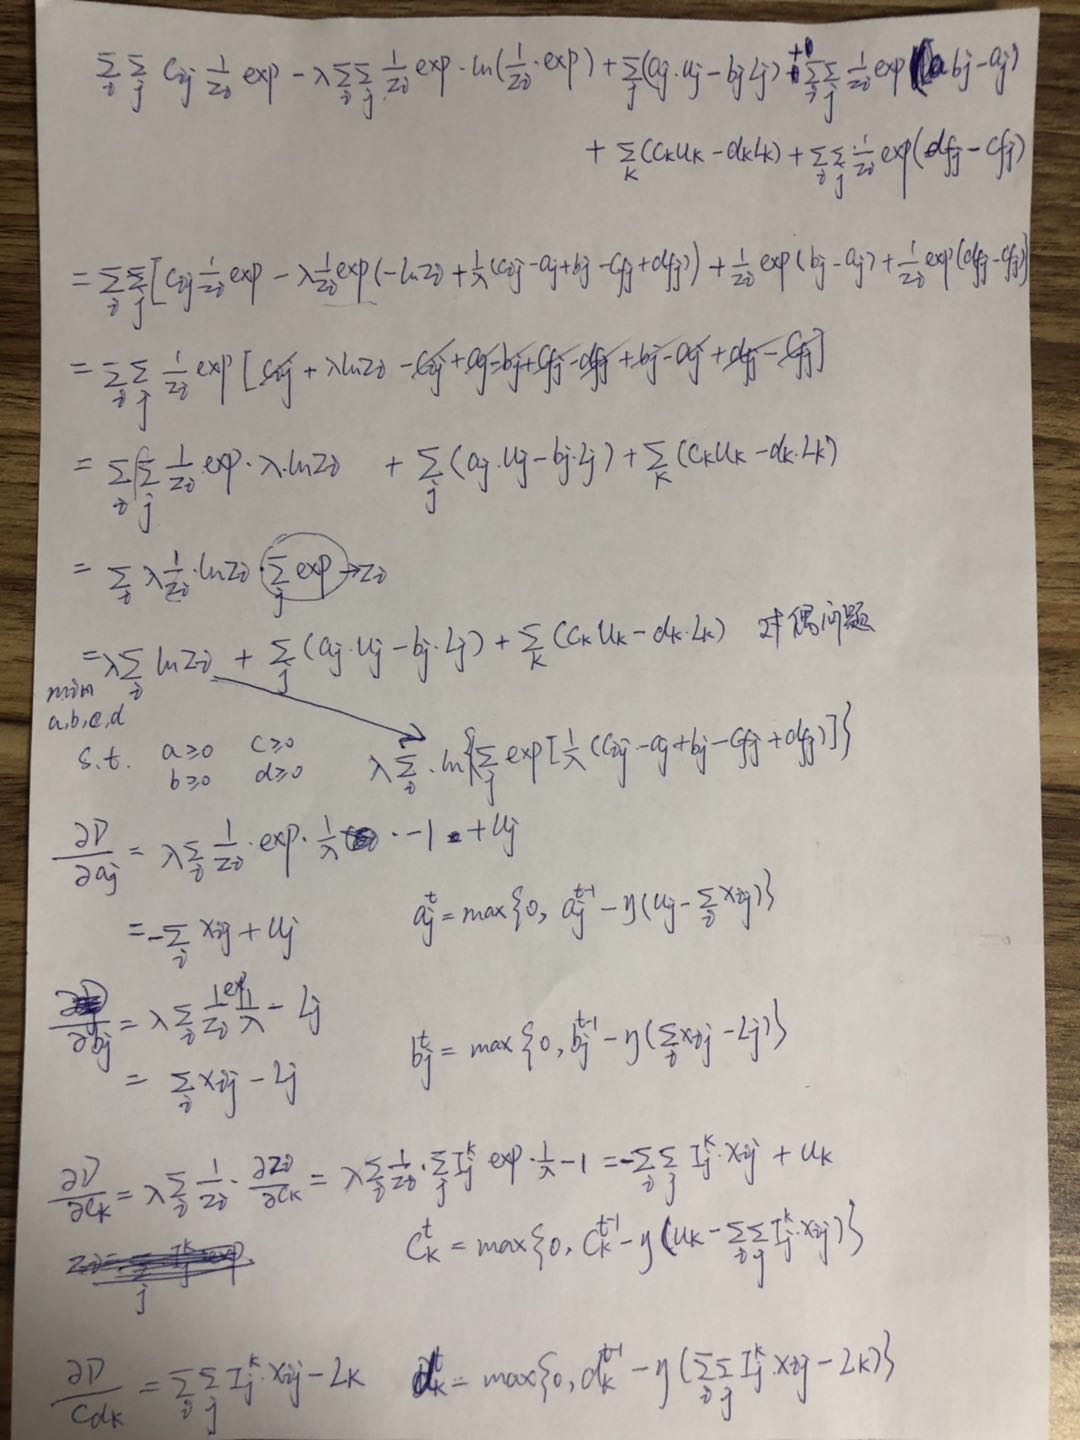 ∑_i ∑_j C_ij 1/Z_i exp − λ∑_i∑_j 1/Z_i exp · ln(1/Z_i · exp) + ∑_j(a_j·U_j − b_j L_j) + ∑_i∑_j 1/Z_i exp(b_j − a_j)
+ ∑_k(C_k U_k − d_k L_k) + ∑_i∑_j 1/Z_i exp(d_fj − C_fj)
= ∑_i∑_j[C_ij 1/Z_i exp − λ 1/Z_i exp(−ln Z_i + 1/λ(C_ij − a_j + b_j − C_fj + d_fj)) + 1/Z_i exp(b_j − a_j) + 1/Z_i exp(d_fj − C_fj)]
= ∑_i∑_j 1/Z_i exp[C_ij + λ ln Z_i − C_ij + a_j − b_j + C_fj − d_fj + b_j − a_j + d_fj − C_fj]
= ∑_i ∑_j 1/Z_i exp · λ · ln Z_i + ∑_j(a_j·U_j − b_j·L_j) + ∑_k(C_k U_k − d_k·L_k)
= ∑_i λ 1/Z_i · ln Z_i · ∑_j exp → Z_i
= λ∑_i ln Z_i + ∑_j(a_j·U_j − b_j·L_j) + ∑_k(C_k U_k − d_k·L_k) 对偶问题
min a,b,c,d
s.t. a≥0 c≥0
b≥0 d≥0
λ∑_i · ln{∑_j exp[1/λ(C_ij − a_j + b_j − C_fj + d_fj)]}
∂D/∂a_j = λ∑_i 1/Z_i · exp · 1/λ · −1 + U_j
= −∑_i x_ij + U_j
a_j^t = max{0, a_j^{t-1} − η(U_j − ∑_i x_ij)}
/∂b_j = λ∑_i 1/Z_i exp 1/λ − L_j
= ∑_i x_ij − L_j
b_j^t = max{0, b_j^{t-1} − η(∑_i x_ij − L_j)}
∂D/∂C_k = λ∑_i 1/Z_i · ∂Z_i/∂C_k = λ∑_i 1/Z_i · ∑_j I_j^k exp · 1/λ · −1 = −∑_i∑_j I_j^k · x_ij + U_k
C_k^t = max{0, C_k^{t-1} − η(U_k − ∑_i∑_j I_j^k · x_ij)}
∂D/Cd_k = ∑_i∑_j I_j^k · x_ij − L_k
d_k^t = max{0, d_k^{t-1} − η(∑_i∑_j I_j^k · x_ij − L_k)}